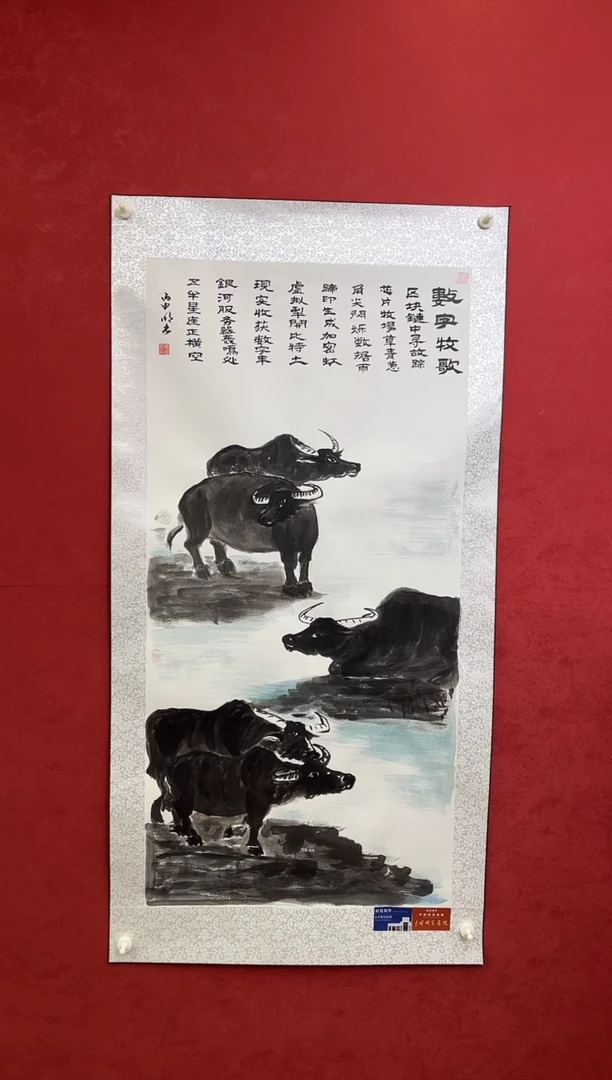 數字牧歌
区块鏈中寻故踪
芯片牧場草青葱
角尖闪烁数据雨
蹄印生成加密虹
虚拟犁開比特土
现实收获数字丰
銀河服务器長鳴处
五牛星座正横空
丙午